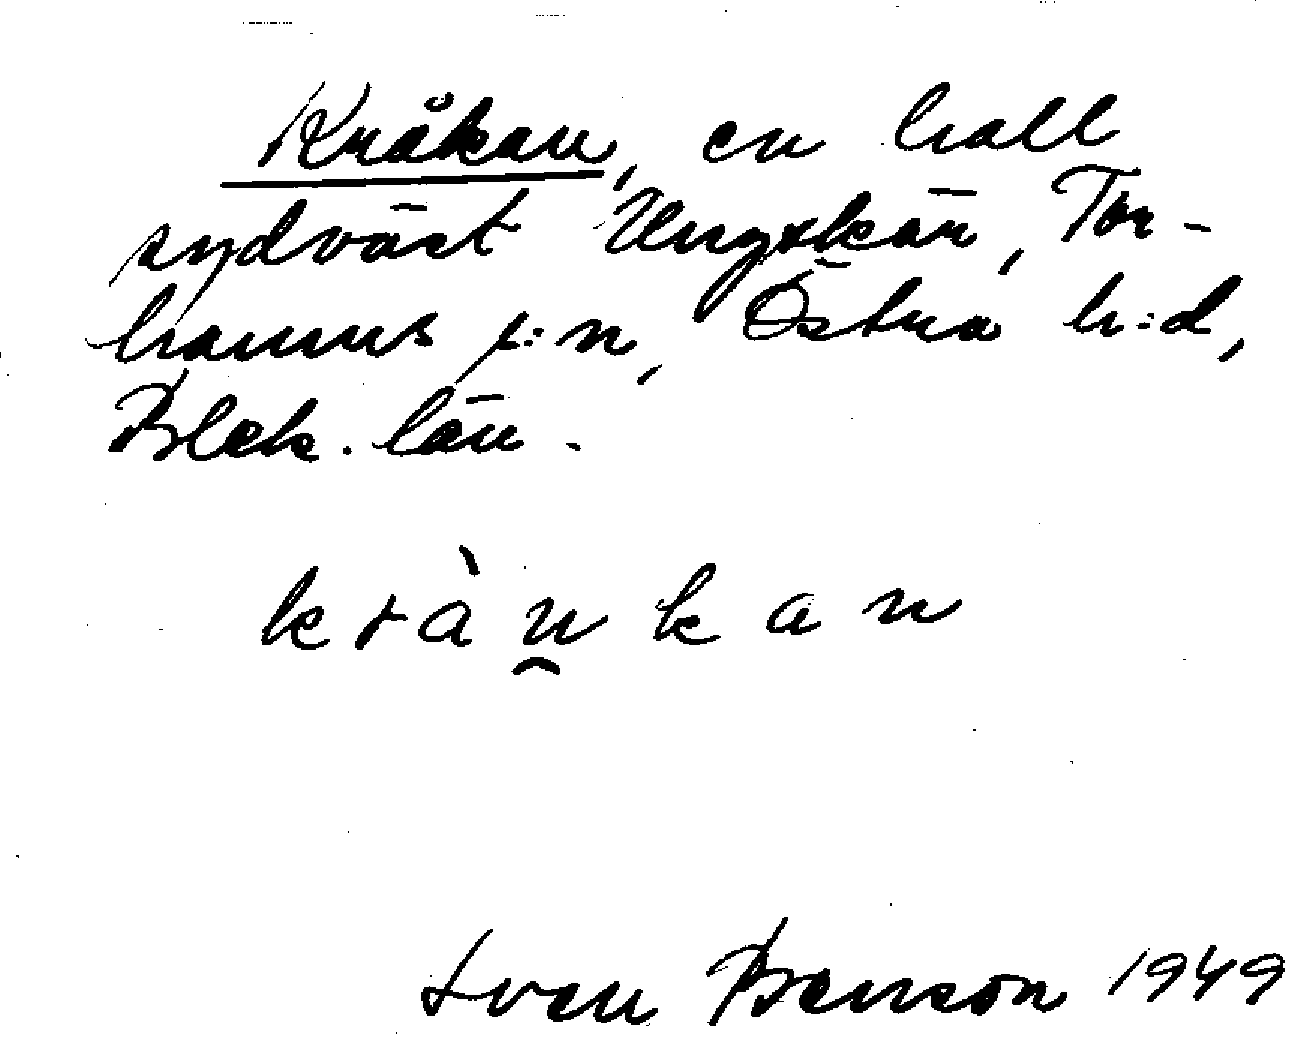 Kråkan, en hall
sydväst Ungskär, Tor-
hamns s:n, Östra h:d,
Blek. län.
kràu̯kan
Sven Benson 1949